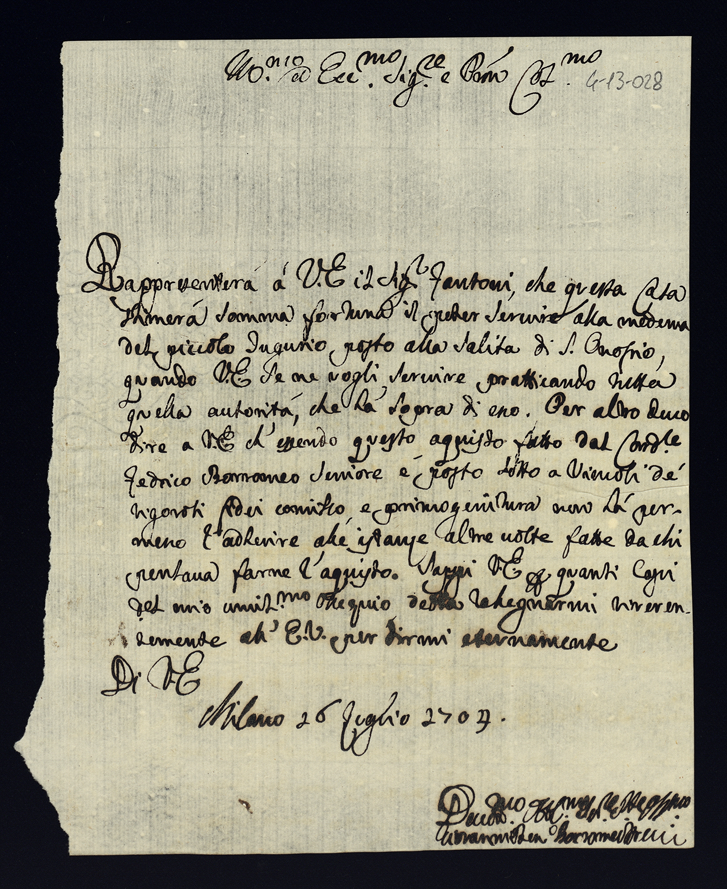 Ecc.mo Sig.re e Pron
4-13-028
Rappresenterá á V.E il Sig.r Fantoni, che questa Casa
stimerá somma fortuna il poter servire alla medema
del piccolo Tugurio posto alla salita di S. Onofrio,
quando V.E se ne vogli servire pratticando tutta
quella autoritá, che há sopra di eno. Per altro devo
dire a V.E ch'essendo questo aquisto fatto dal Card.le
Fedrico Borromeo Seniore é posto sotto a Vincoli dé
rigorosi fidei comisso e primogenitura non há per-
meno l'adherire alle istanze altre volte fatte da chi
pensava farne l'aquisto. Sappi V.E quanti
del mio umil.mo ossequio rassegnarmi riveren-
temente all' E.V. per dirmi eternamente
Di V.E
Milano 26 Luglio